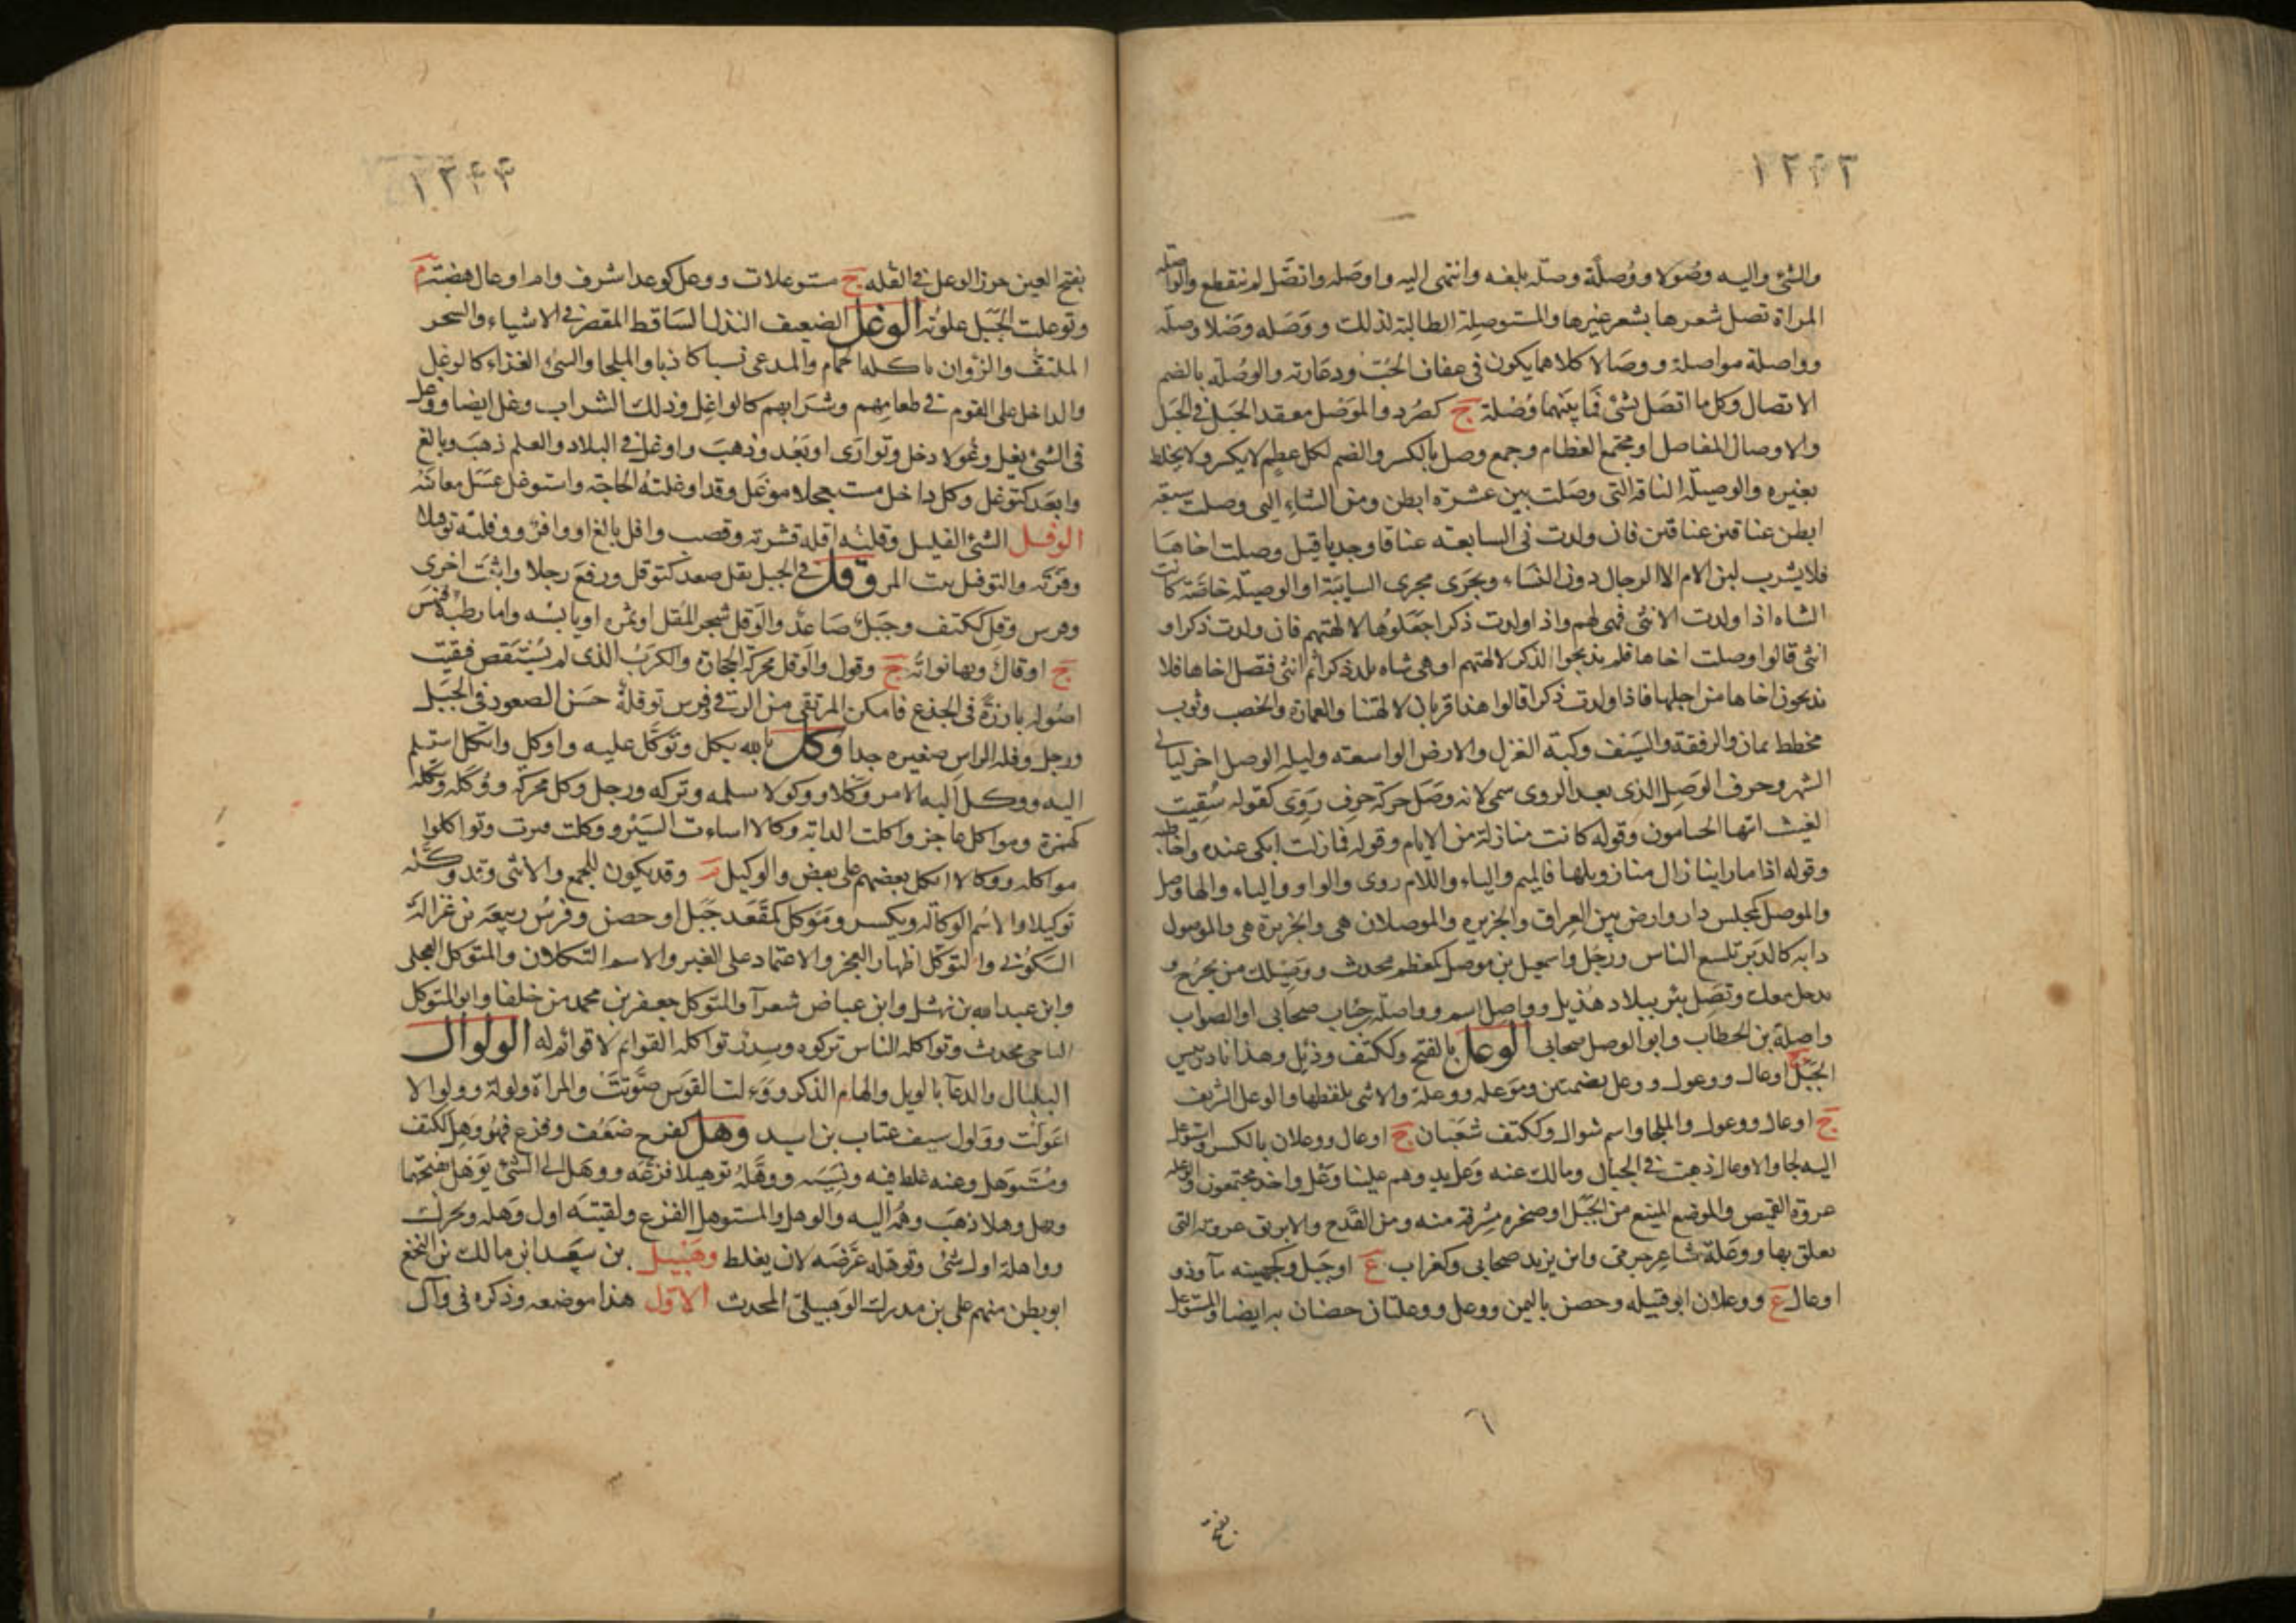 ١٢٤٢
والشئ واليه وصولا ووُصلَة وصِلَه بلغه وانتهى اليه واوصَله واتصَّل لم ينقطع والواصله
المراة تصل شعرها بشعر غيرها والمستوصِلة الطالبة لذلك ووَصَله وصْلا وصِلَه
وواصلة مواصلة ووصَالا كلاهما يكون فى عفاف الحُبّ ودعَارته والوصُلة بالضم
الاتصال وكل ما اتصَل بشئ فما بينهما وُصْلة ج كصُرد والموصَل معقد الحبل فى الحبَل
والاوصال المفاصل او مجتمع العظام وجمع وصل بالكسر والضم لكل عظم لا يكسر ولا يختلط
بغيره والوصيلَة الناقة التى وصَلت بين عشرة ابطن ومن الشاء التى وصلت سبعة
ابطن عناقين عناقين فان ولدت فى السابعه عناقا وجديا قيل وصلت اخاها
فلا يشرب لبن الام الا الرجال دون النسَاء ويجرَى مجرى السايبَة او الوصيلة خاصَة كانت
الشاه اذا ولدت الانثى فهى لهم واذ اولدت ذكرا جَعَلوُها لالهتهم فان ولدت ذكرا و
انثى قالوا وصلت اخاها فلم يذبحوا الذكر لالهتهم او هى شاه تلد ذكرا ثم انثى فتصل اخاها فلا
يذبحون اخاها من اجلها فاذا ولدت ذكرا قالوا هذا قربان لالهتنا والعمارة والخصب وثوب
مخطط يمان والرفقة والسَيف وكبة الغزل والارض الواسعته وليله الوصل اخر ليالى
الشهر وحرف الوصَل الذى بعد الروى سمى لانه وصَل حركة حرف رَوِى كقوله سُقِيت
الغيث ايتها الخيامون وقوله كانت منازلة من الايام وقوله فمازلت ابكى عنده واخاطبه
وقوله اذا ما راينا زال منا زويلها فالميم والياء واللام روى والواو والياء والها وصل
والموصل كمجلس دار وارض بين العِراق والجزيره والموصلان هى والجزيرة هى والموصول
دابه كالدَبر تلسع الناس ورجُل واسمعيل بن موصل كمعظم محدث ووَصِيلك من يخرُج و
يدخل معك وتَصِل بئر ببلاد هُذيل وواصل اسم وواصلَة بن جُباب صحابى او الصواب
واصلة بن الخطاب وابو الوصل صحابى الوعل بالفتح وككتف ودُئِل وهذا نادر تيس
الجبَل ج اوعال ووعول ووعل بضمتين وموعله ووعلة والانثى بلفظها والوعل الشريف
ج اوعال ووعول والملجا واسم شوال وككتف شعبَان ج اوعال ووعلان بالكسر واستوعل
اليه لجا والاوعال ذهبت فى الجبال ومالك عنه وَعل بد وهم علينا وَعْل واحد مجتمعون والوعله
عروة القميص والموضع المنيع من الجبَل او صخره مشرفة منه ومن القَدح والابريق عروته التى
يعلق بها ووعَلة شاعر جرمى وابن يزيد صحابى وكغراب ع او جَبل وكجهينه مآ وذو
اوعال ع ووعلان ابو قبيله وحصن باليمن ووعل ووعلتان حصنان به ايضا والمستوعل
٦
بفتح
١٢٤٣
بفتح العين حرز الوعل فى القله ج مستوعلات ووعل كوعد اشرف وام اوعال هضبة م
وتوعلت الجبَل علوتُه الوغل الضعيف النذل الساقط المقصر فى الاشياء والشجر
الملتفّ والزُوان ياكله الحمام والمدعى نسبا كاذبا والملجا والسئ الغذاء كالوغِل
والداخل على القوم فى طعامهم وشرَابهم كالواغِل وذلك الشراب وغل ايضا ووغل
فى الشئ يغل وغولا دخل وتوارَى او بَعُد وذهبَ واوغل فى البلاد والعلم ذهب وبالغ
وابعَد كتوغل وكل داخل مستعجلا موغل وقد اوغلته الحاجة واستوغل غسَل مغابنَه
الوفل الشئ القليل وقلبه اقله قشرته وقصب وافل بالغ او وافر ووفلته توفيلا
وفرته والتوفل نبت المر وقل فى الجبل يقل صعد كتوقل ورفعَ رجلا واثبت اخرى
وفرس وقِل ككتف وجَبل صَاعد والوَقل شجر المقل او ثمره او يابسُه واما رطبه فبهش
ج اوقال وبها نواته ج وقول والوقل محركة الحجارة والكرَبُ الذى لم يُسْتَقص فبقيت
اصُوله بارزة فى الجذع فامكن المرتقى من الرقى وفرس توقلة حسَن الصعود فى الجبَل
ورجل وقله الراس صغيره جدا وكل بالله يكل وتوكّل عليه واوكل واتكل استسلم
اليه ووكل اليه الامر وَكلا ووكولا سلمه وتركه ورجل وكل محركة ووُكله وتكله
كهمزة ومواكل عاجز واكلت الدابة وكالا اساءت السَيْر ووكلت فترت وتواكلوا
مواكله ووكالا اتكل بعضهم على بعض والوكيل م وقد يكون للجمع والانثى وقد وكَّله
توكيلا والاسُم الوكالة ويكسر ومَوكل كمَقعَد جَبل او حصن وفرسُ ربيعة بن غزالة
السَكونى والتوكُل اظهار العجز والاعتماد على الغير والاسم التكلان والمتوكل العجلى
وابن عبد الله بن نهشل وابن عياض شعرآ والمتوكل جعفر بن محمد من خلفا وابو المتوكل
الناجى محدث وتواكله الناس تركوه وسدُن تواكله القوايم لا قوائم له الولوال
البلبال والدعآ بالويل والهام الذكر وولولت القوس صوّتتْ والمراة ولولة وولوالا
اعولَت وولول سيف عتاب بن اسيد وهل كفرح ضعُف وفزع فهُو وَهِل ككتف
ومُستوهل وعنه غلط فيه ونسِيَه ووهّلهُ توهيلا فزعَه ووهَل الى الشئ يوَهل بفتحهما
ويهل وهلا ذهبَ وهمُه اليه والوهل والمستوهل الفزع ولقيته اول وهَله ويحرك
وواهلة اول شئ وتوهله عرَّضَه لان يغلط وهبيل بن سعَد ابن مالك بن النخع
ابو بطن منهم على بن مدرك الوَهبيلى المحدث الاوّل هذا موضعه وذكره فى وآل